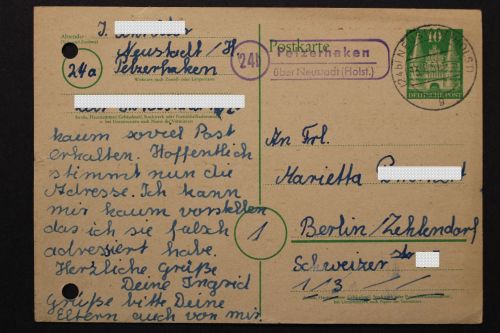 Absender:
J.
Neustadt/H.
24a Pelzerhaken
Wohnort, auch Zustell- oder Leitpostamt
Straße, Hausnummer, Gebäudeteil, Stockwerk oder Postschließfachnummer
kaum soviel Post
erhalten. Hoffentlich
stimmt nun die
Adresse. Ich kann
mir kaum vorstellen
das ich sie falsch
adressiert habe.
Herzliche Grüße
Deine Ingrid
Grüße bitte Deine
Eltern auch von mir.
Postkarte
24b
Pelzerhaken
über Neustadt (Holst.)
10
DEUTSCHE POST
An Frl.
Marietta
Berlin/Zehlendorf
1
Schweizer str
1/3